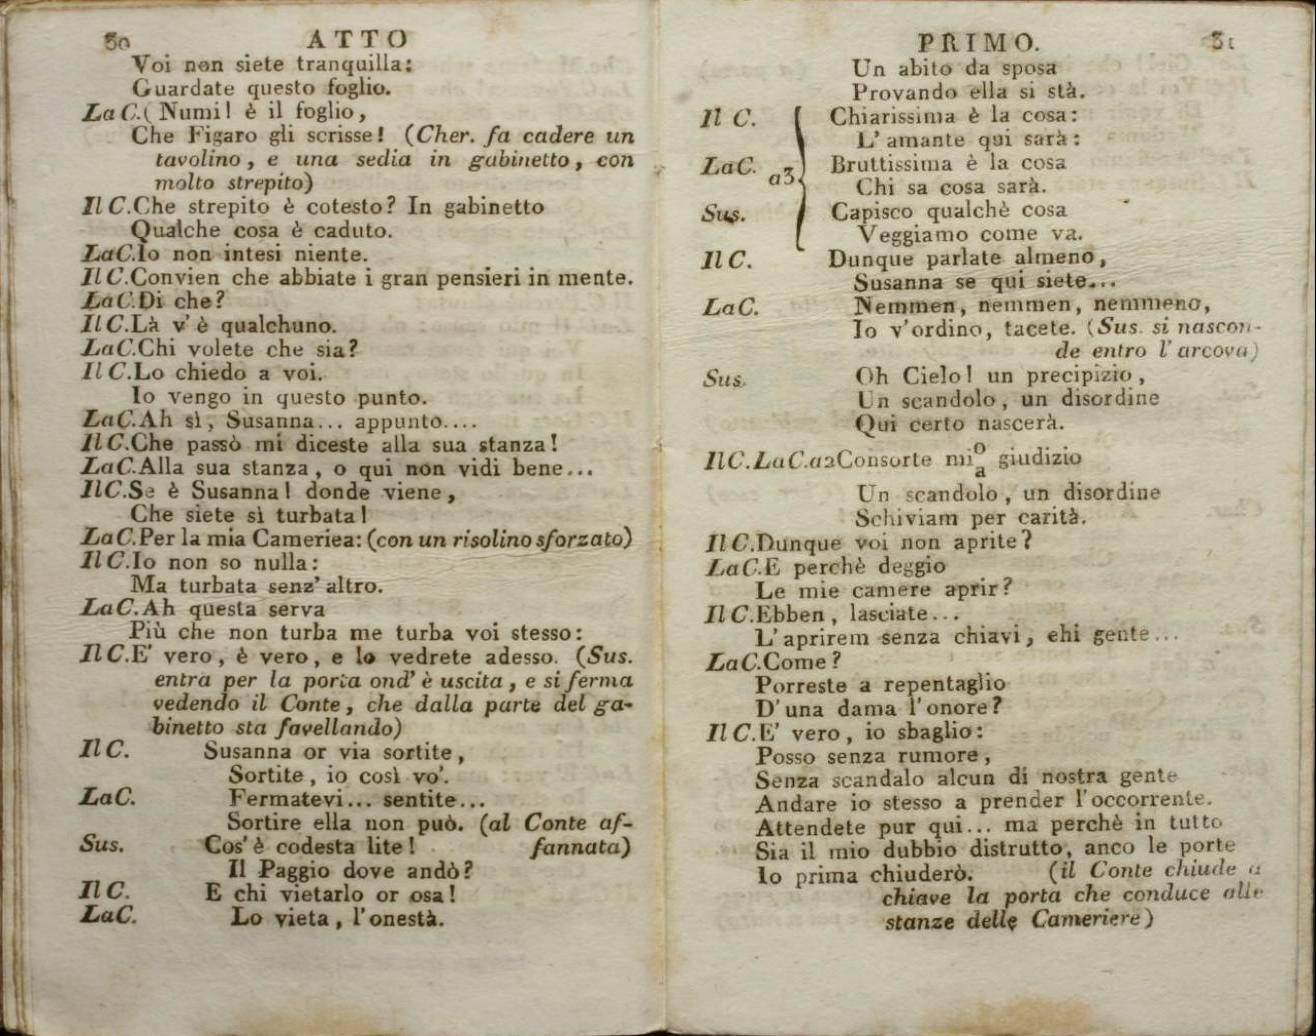 30 ATTO
Voi non siete tranquilla:
Guardate questo foglio.
La C.(Numi! è il foglio,
Che Figaro gli scrisse! (Cher. fa cadere un
tavolino, e una sedia in gabinetto, con
molto strepito)
Il C.Che strepito è cotesto? In gabinetto
Qualche cosa è caduto.
La C.Io non intesi niente.
Il C.Convien che abbiate i gran pensieri in mente.
La C.Di che?
Il C.Là v'è qualchuno.
La C.Chi volete che sia?
Il C.Lo chiedo a voi.
Io vengo in questo punto.
La C.Ah sì, Susanna... appunto....
Il C.Che passò mi diceste alla sua stanza!
La C.Alla sua stanza, o qui non vidi bene...
Il C.Se è Susanna! donde viene,
Che siete sì turbata!
La C.Per la mia Cameriea: (con un risolino sforzato)
Il C.Io non so nulla:
Ma turbata senz' altro.
La C.Ah questa serva
Più che non turba me turba voi stesso:
Il C.E' vero, è vero, e lo vedrete adesso. (Sus.
entra per la porta ond' è uscita, e si ferma
vedendo il Conte, che dalla parte del ga-
binetto sta favellando)
Il C. Susanna or via sortite,
Sortite, io così vo'.
La C. Fermatevi... sentite...
Sortire ella non può. (al Conte af-
Sus. Cos' è codesta lite! fannata)
Il Paggio dove andò?
Il C. E chi vietarlo or osa!
La C. Lo vieta, l'onestà.
PRIMO. 31
Un abito da sposa
Provando ella si stà.
Il C. Chiarissima è la cosa:
L' amante qui sarà:
La C. a3 Bruttissima è la cosa
Chi sa cosa sarà.
Sus. Capisco qualchè cosa
Veggiamo come va.
Il C. Dunque parlate almeno,
Susanna se qui siete...
La C. Nemmen, nemmen, nemmeno,
Io v'ordino, tacete. (Sus. si nascon-
de entro l' arcova)
Sus. Oh Cielo! un precipizio,
Un scandolo, un disordine
Qui certo nascerà.
Il C. La C. a2 Consorte mi o/a giudizio
Un scandolo, un disordine
Schiviam per carità.
Il C.Dunque voi non aprite?
La C.E perchè deggio
Le mie camere aprir?
Il C.Ebben, lasciate...
L'aprirem senza chiavi, ehi gente...
La C.Come?
Porreste a repentaglio
D'una dama l'onore?
Il C.E' vero, io sbaglio:
Posso senza rumore,
Senza scandalo alcun di nostra gente
Andare io stesso a prender l'occorrente.
Attendete pur qui... ma perchè in tutto
Sia il mio dubbio distrutto, anco le porte
Io prima chiuderò. (il Conte chiude a
chiave la porta che conduce alle
stanze delle Cameriere)